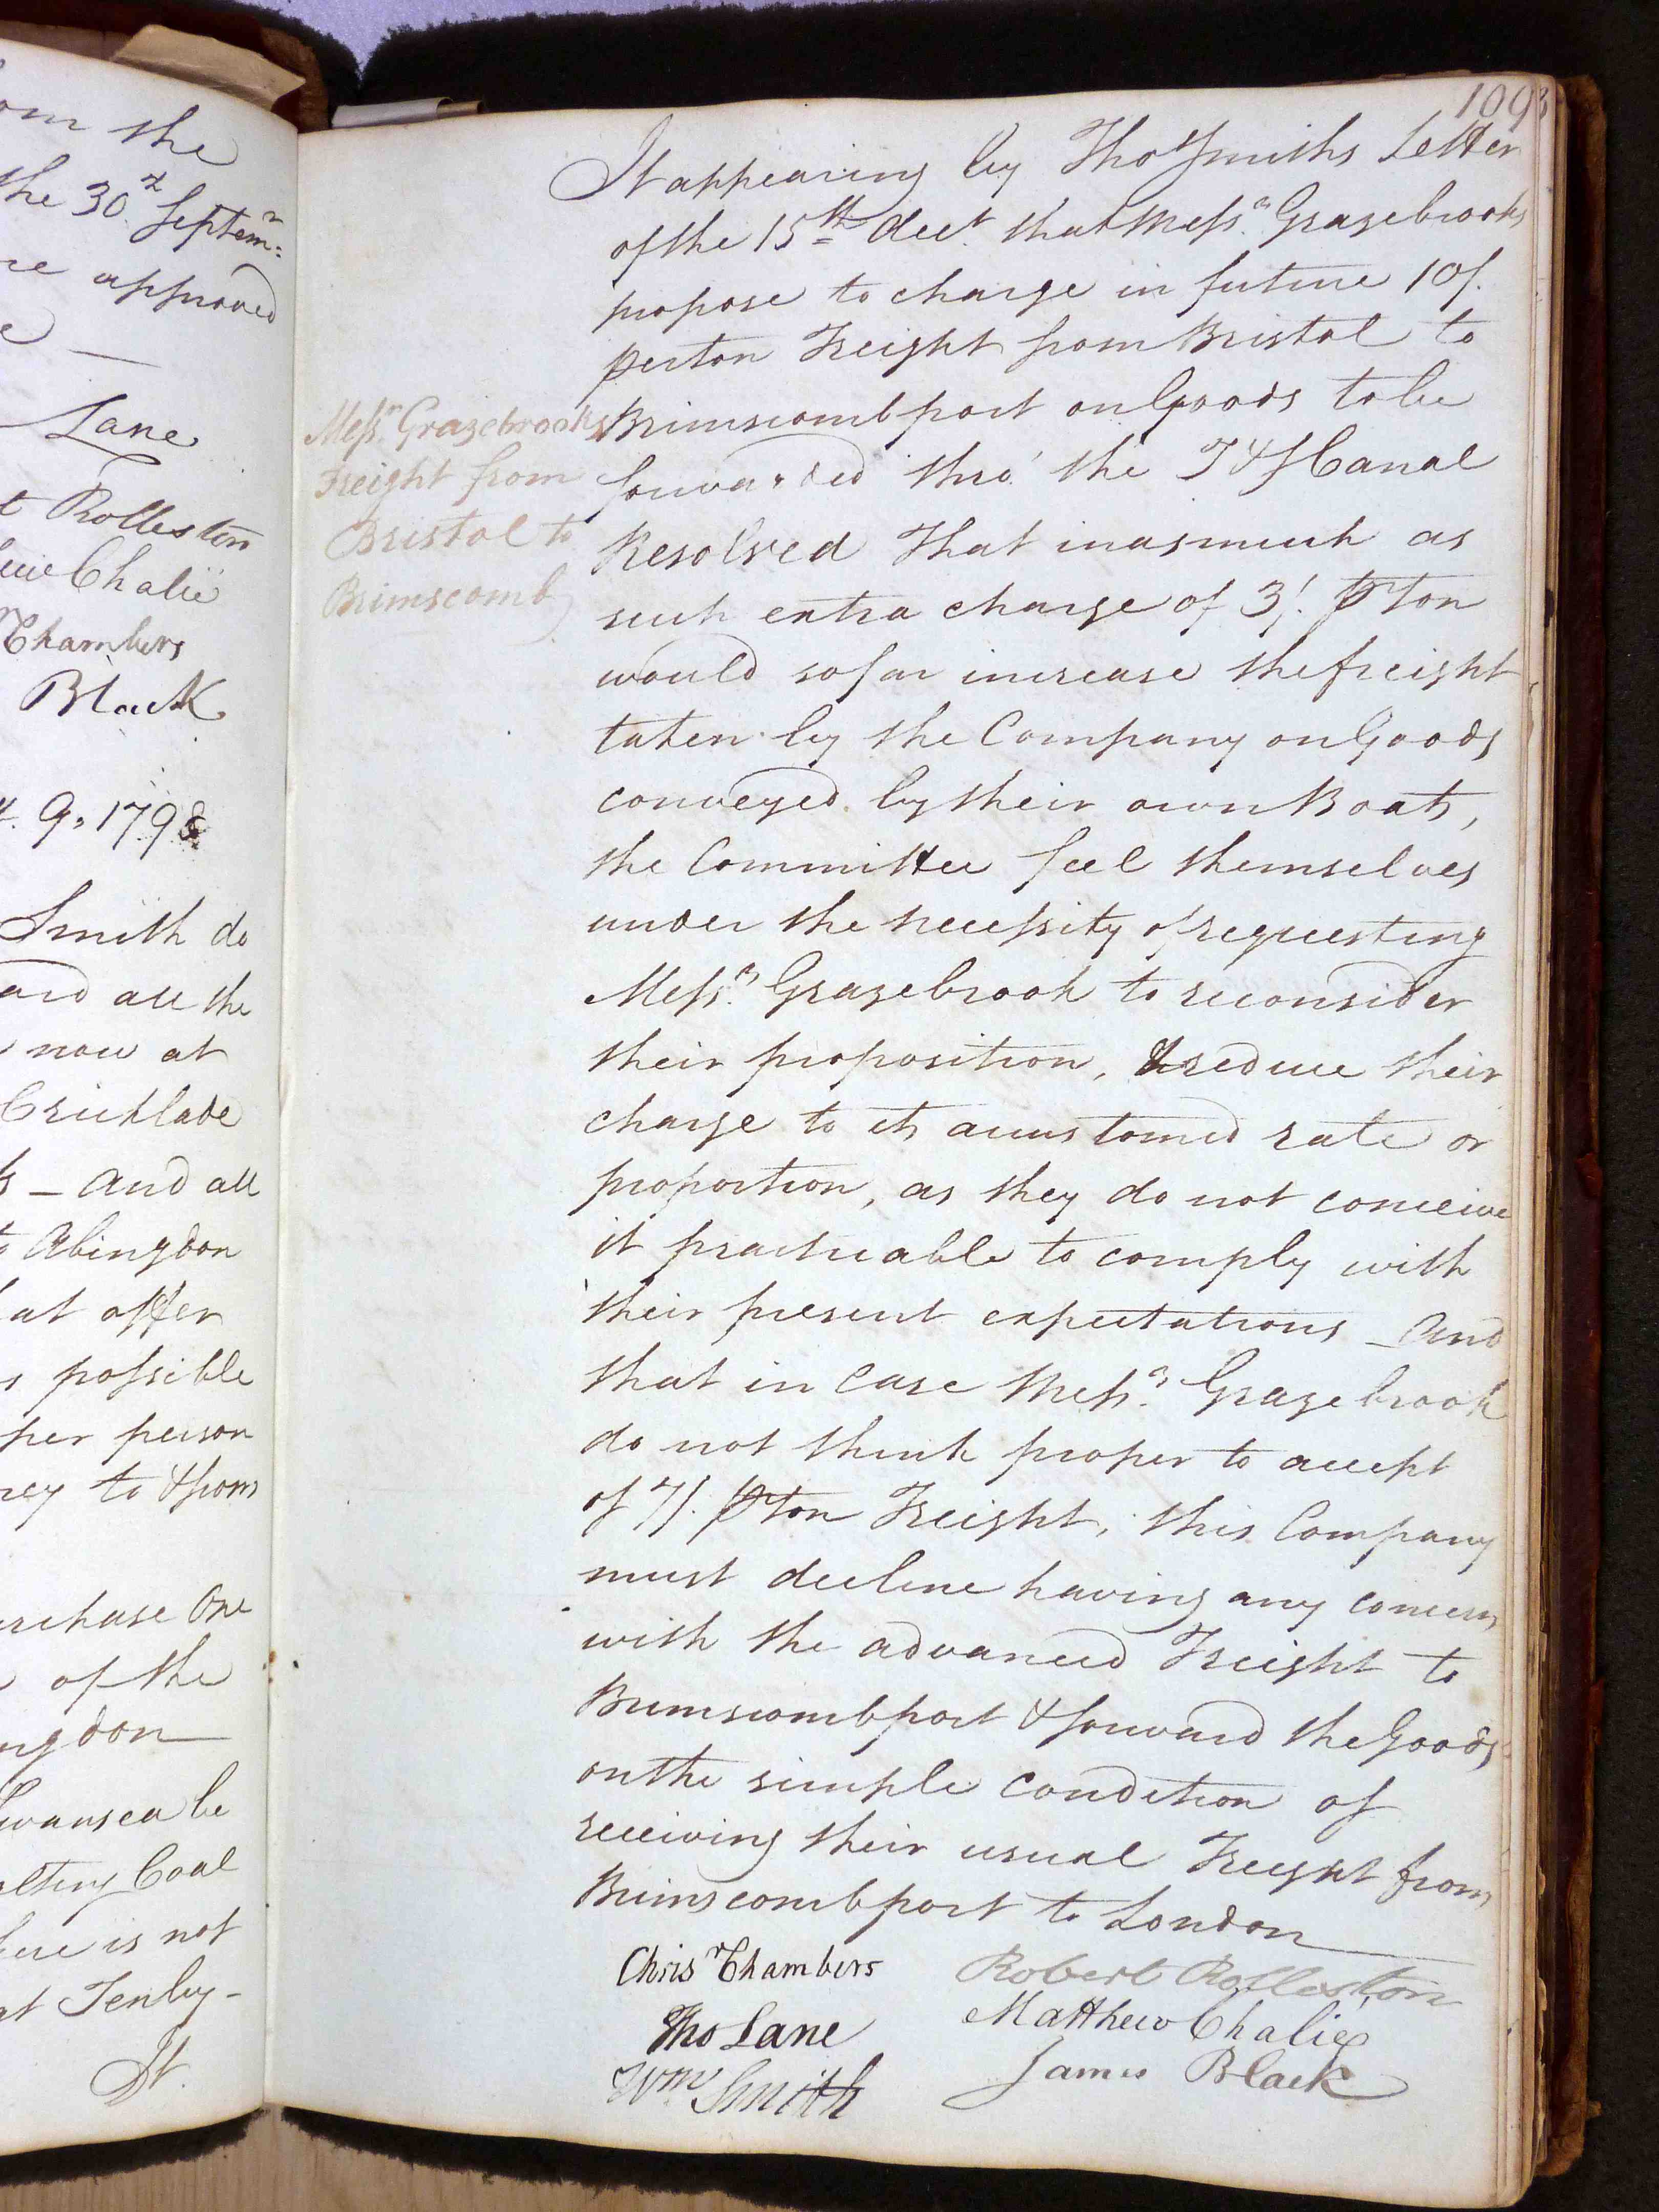 om the
the 30th Septemr:
re approved
Lane
t Rolleston
Chalié
Chambers
Black
9, 1798
Smith do
ard all the
now at
Cricklade
and all
to Abingdon
at offer
possible
per person
ney to & from
urchase One
of the
ngdon
wansea be
Coal
here is not
at Tenby -
It
109
It appearing by Thos Smiths Letter
of the 15th Decr. that Messrs. Grazebrooks
propose to charge in future 10/.
per ton Freight from Bristol to
Brimscombport on Goods to be
forwarded thro' the T & S Canal
Messrs. Grazebrooks
Freight from
Bristol to
Brimscomb
Resolved That inasmuch as
such extra charge of 3/. ⅌ Ton
would so far increase the freight
taken by the Company on Goods
conveyed by their own Boats,
the Committee feel themselves
under the necessity of requesting
Messrs. Grazebrook to reconsider
their proposition, & reduce their
charge to its accustomed rate or
proportion, as they do not conceive
it practicable to comply with
their present expectations - And
that in case Messrs. Grazebrook
do not think proper to accept
of 7/. ⅌ Ton Freight, this Company
must decline having any concern
with the advanced Freight to
Brimscombport & forward the Goods
on the simple condition of
receiving their usual Freight from
Brimscombport to London
Chrisr Chambers
Robert Rolleston
Tho Lane
Matthew Chalié
Wm Smith
James Black